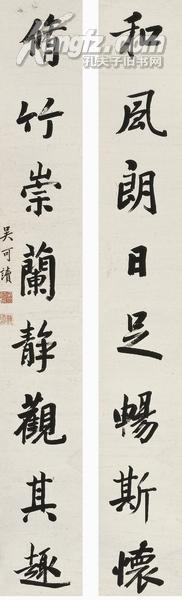 和風朗日足暢斯懷
脩竹崇蘭靜觀其趣
吳可讀
Kongfz.com
孔夫子旧书网